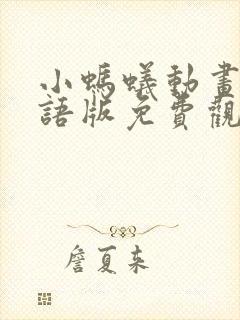 小螞蟻動畫
語版免費觀
詹夏來